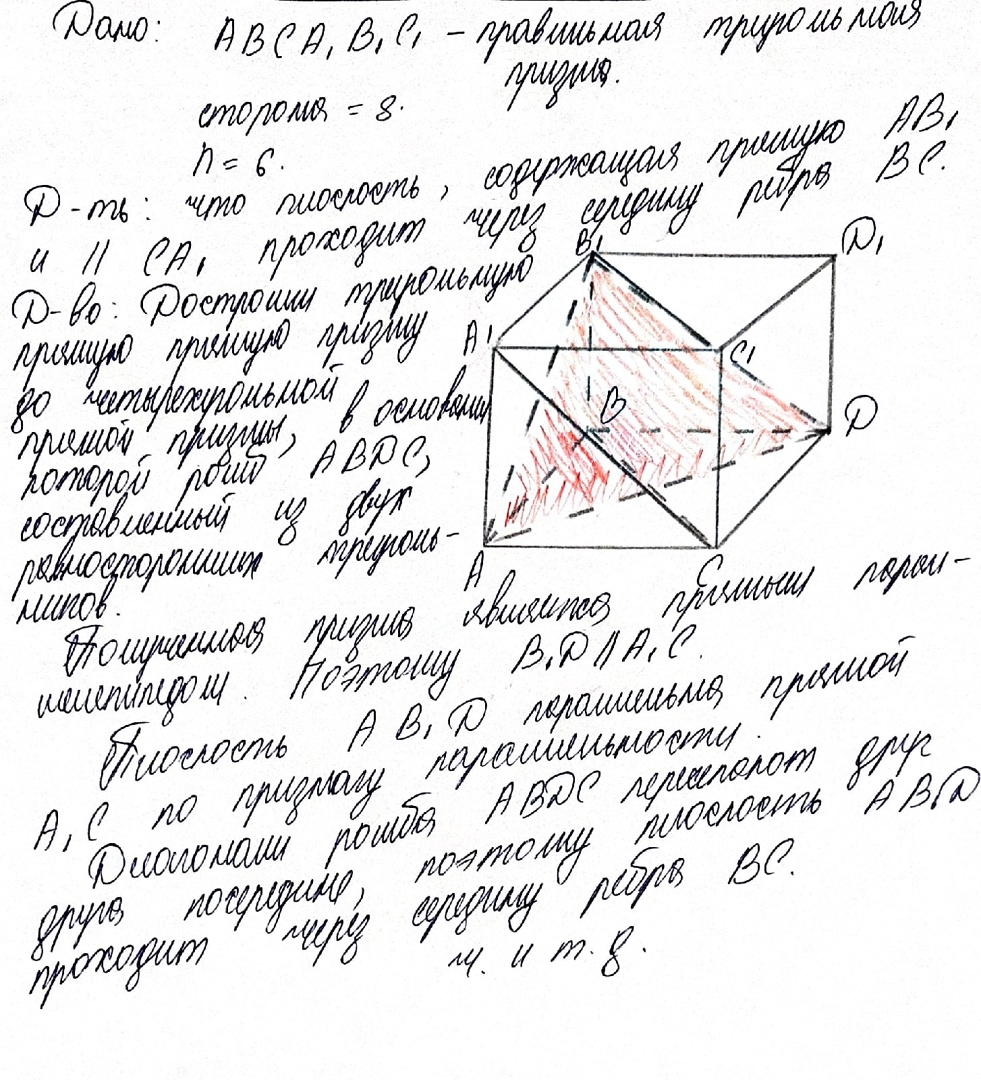 Дано: ABCA₁B₁C₁ - правильная треугольная
призма.
сторона = 8.
h = 6.
Д-ть: что плоскость, содержащая прямую AB₁
и || CA₁ проходит через середину ребра BC.
Д-во: Достроим треугольную
прямую прямую призму
до четырехугольной
прямой призмы, в основании
которой ромб ABDC,
составленный из двух
равносторонних треуголь-
ников.
Полученная призма является прямым парал-
лелепипедом. Поэтому B₁D || A₁C.
Плоскость AB₁D параллельна прямой
A₁C по признаку параллельности.
Диагонали ромба ABDC пересекают друг
друга посередине, поэтому плоскость AB₁D
проходит через середину ребра BC.
ч. и т. д.
B₁
D₁
A₁
C₁
B
D
A
C